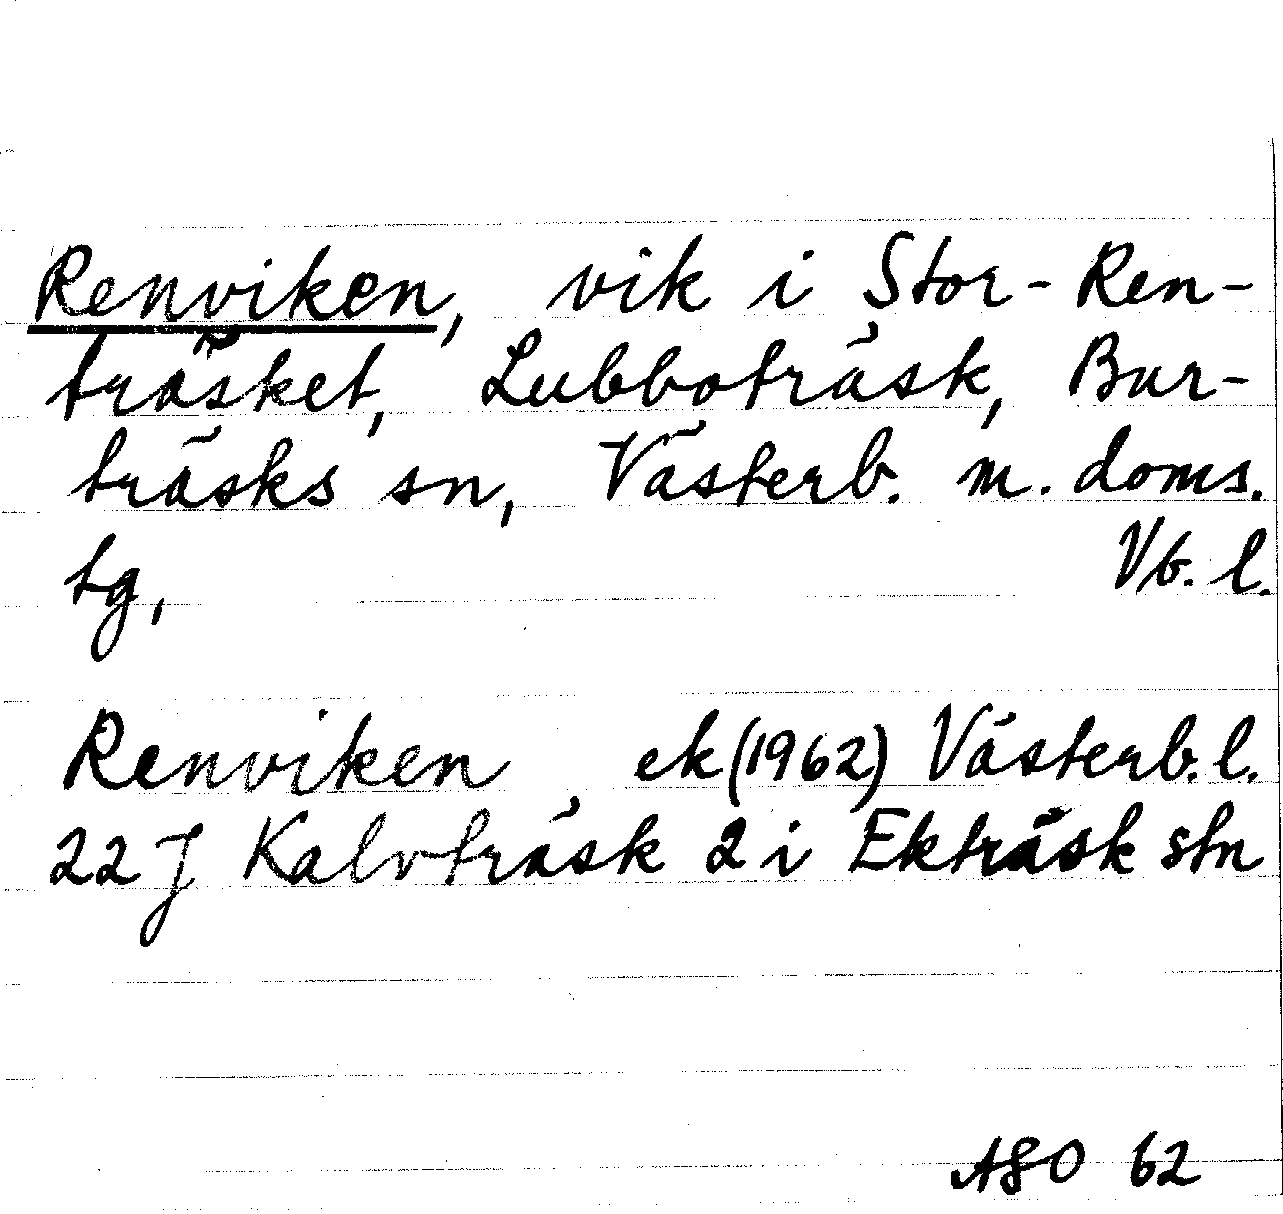 Renviken, vik i Stor-Ren-
träsket, Lubboträsk, Bur-
träsks sn, Västerb. m. doms.
tg, Vb. l.
Renviken ek (1962) Västerb. l.
22 J Kalvträsk 2 i Ekträsk stn
ASO 62